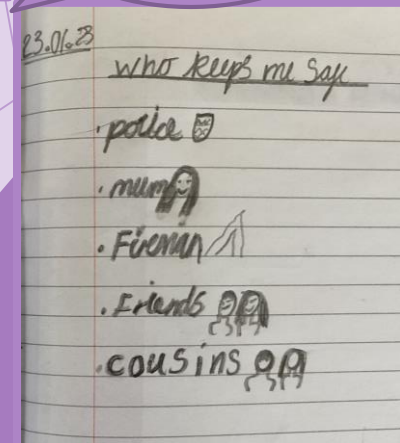 23.01.23
who keeps me safe
· police
· mum
· Fireman
· Friends
· cousins